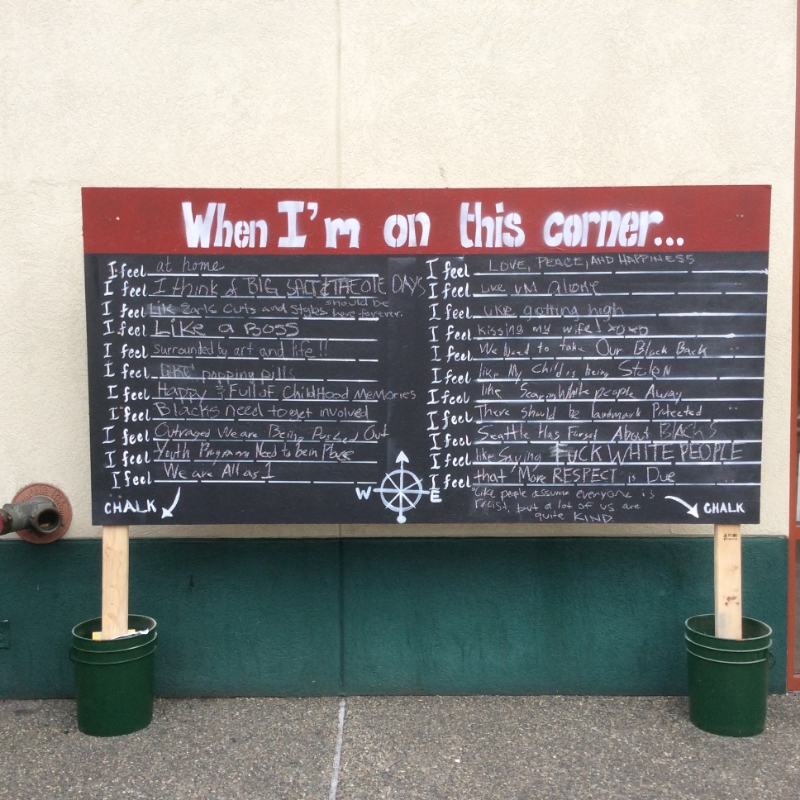 When I'm on this corner...
I feel at home
I feel I think of BIG SALT & THE OLE DAYS
I feel Like Earls Cuts and Styles should be here forever.
I feel Like a BOSS
I feel surrounded by art and life!!
I feel Like popping pills
I feel Happy & Full of Childhood Memories
I feel Blacks need to get involved
I feel Outraged We are Being Pushed Out
I feel Youth Programs Need to be in Place
I feel We are All as 1
I feel LOVE, PEACE, AND HAPPINESS
I feel Like I'M Alone
I feel like getting high
I feel kissing my wife!
I feel We Need to take Our Block Back
I feel like My Child is being Stolen
I feel like Scaring White people Away
I feel There should be landmark Protected
I feel Seattle Has Forgot About BLACKS
I feel like Saying FUCK WHITE PEOPLE
I feel that More RESPECT is Due
"Like people assume everyone is
racist, but a lot of us are
quite KIND
W E
CHALK
CHALK